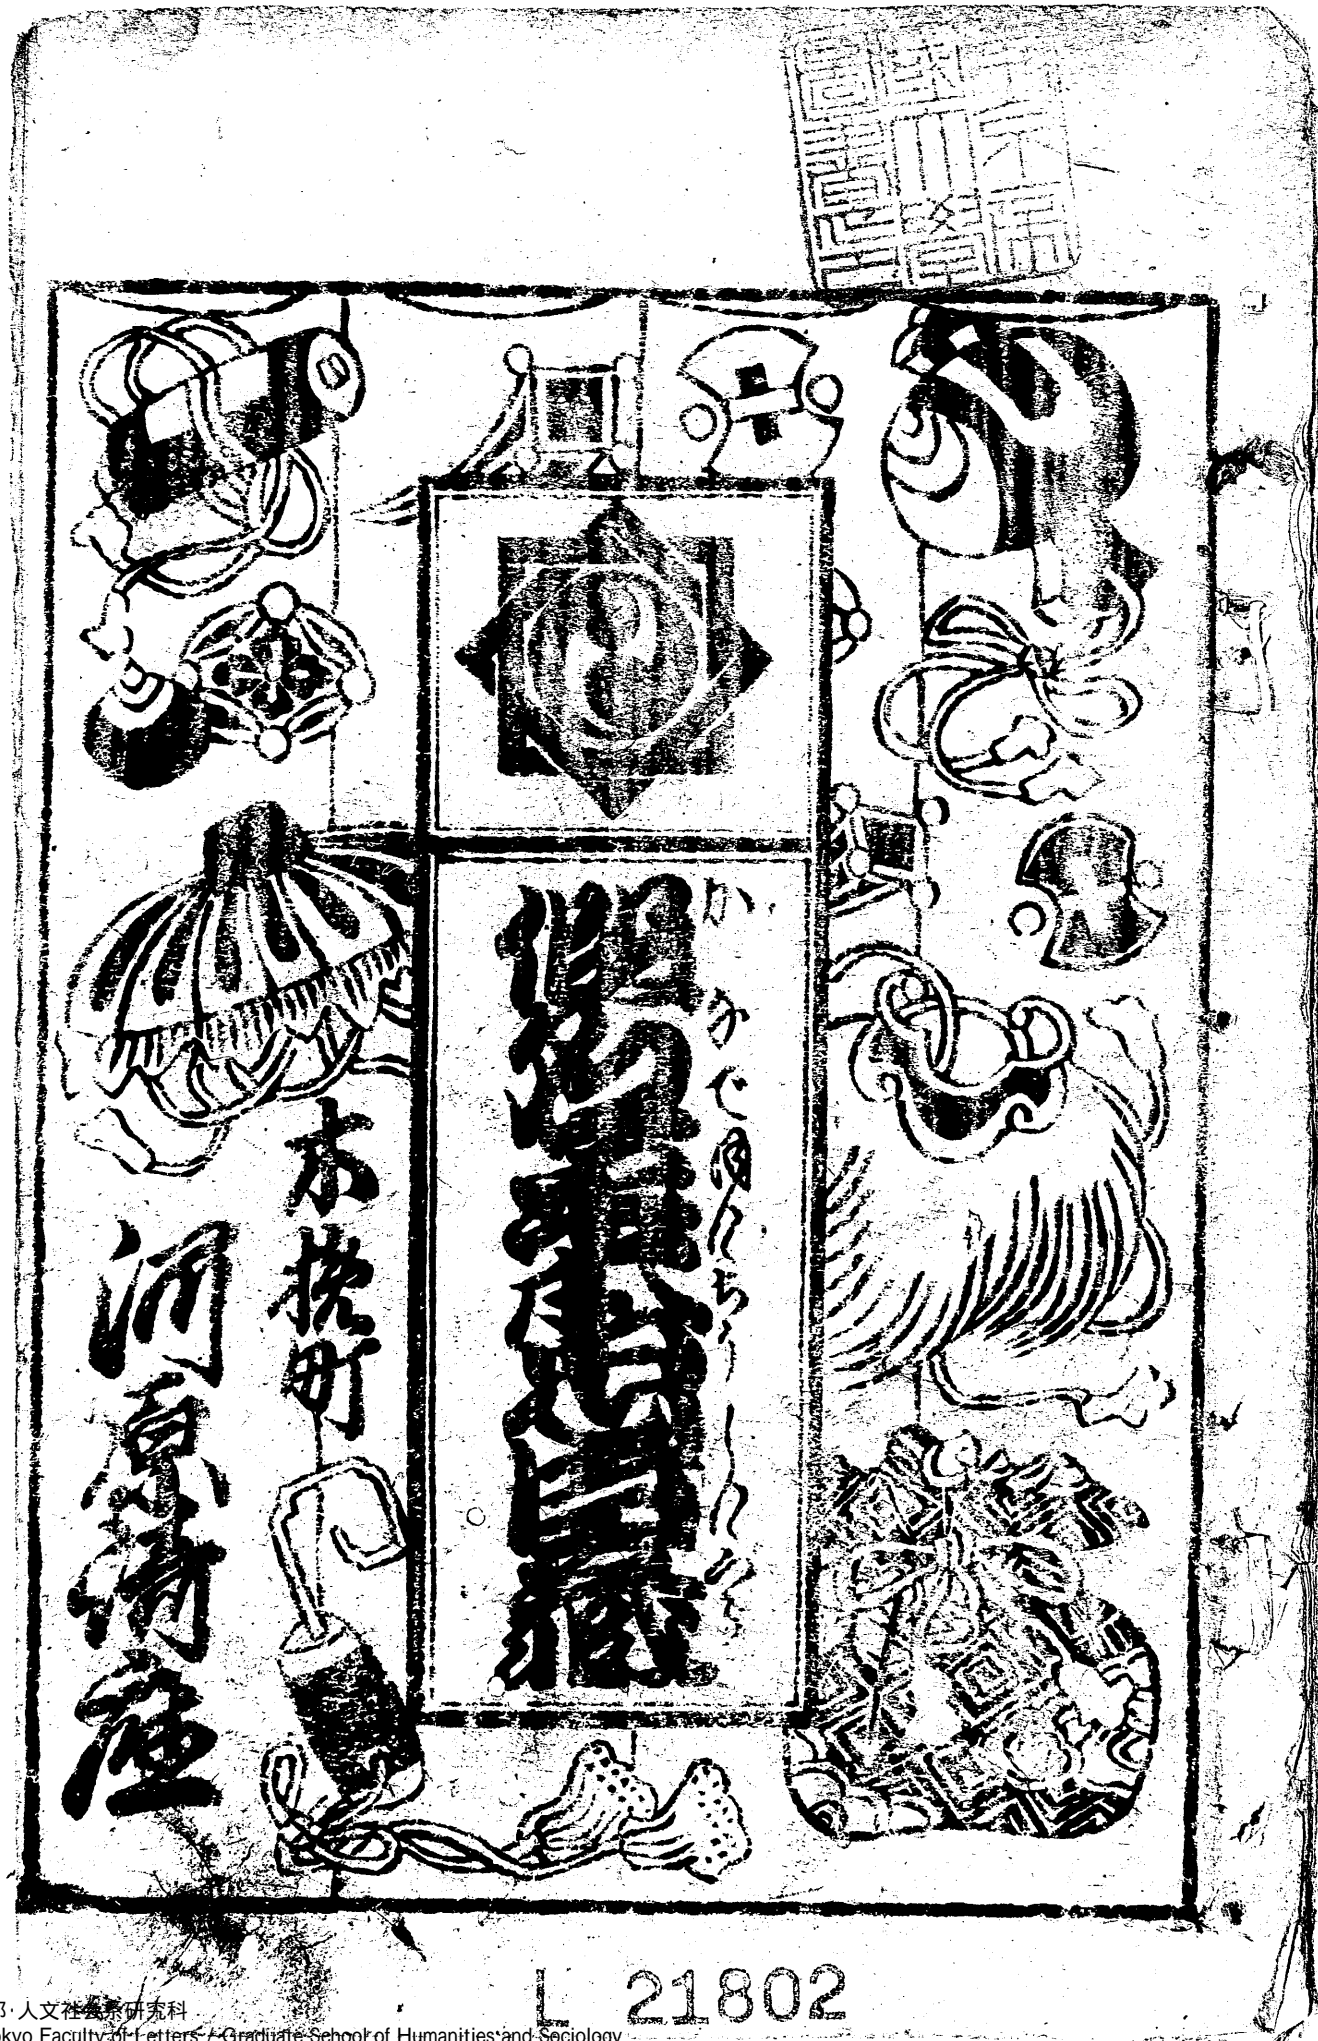 東京帝
國大學
圖書印
かなでほんちうしんぐら
假名手本忠臣藏
木挽町
河原崎座
L 21802
部・人文社会系研究科
okyo Faculty of Letters / Graduate School of Humanities and Sociology